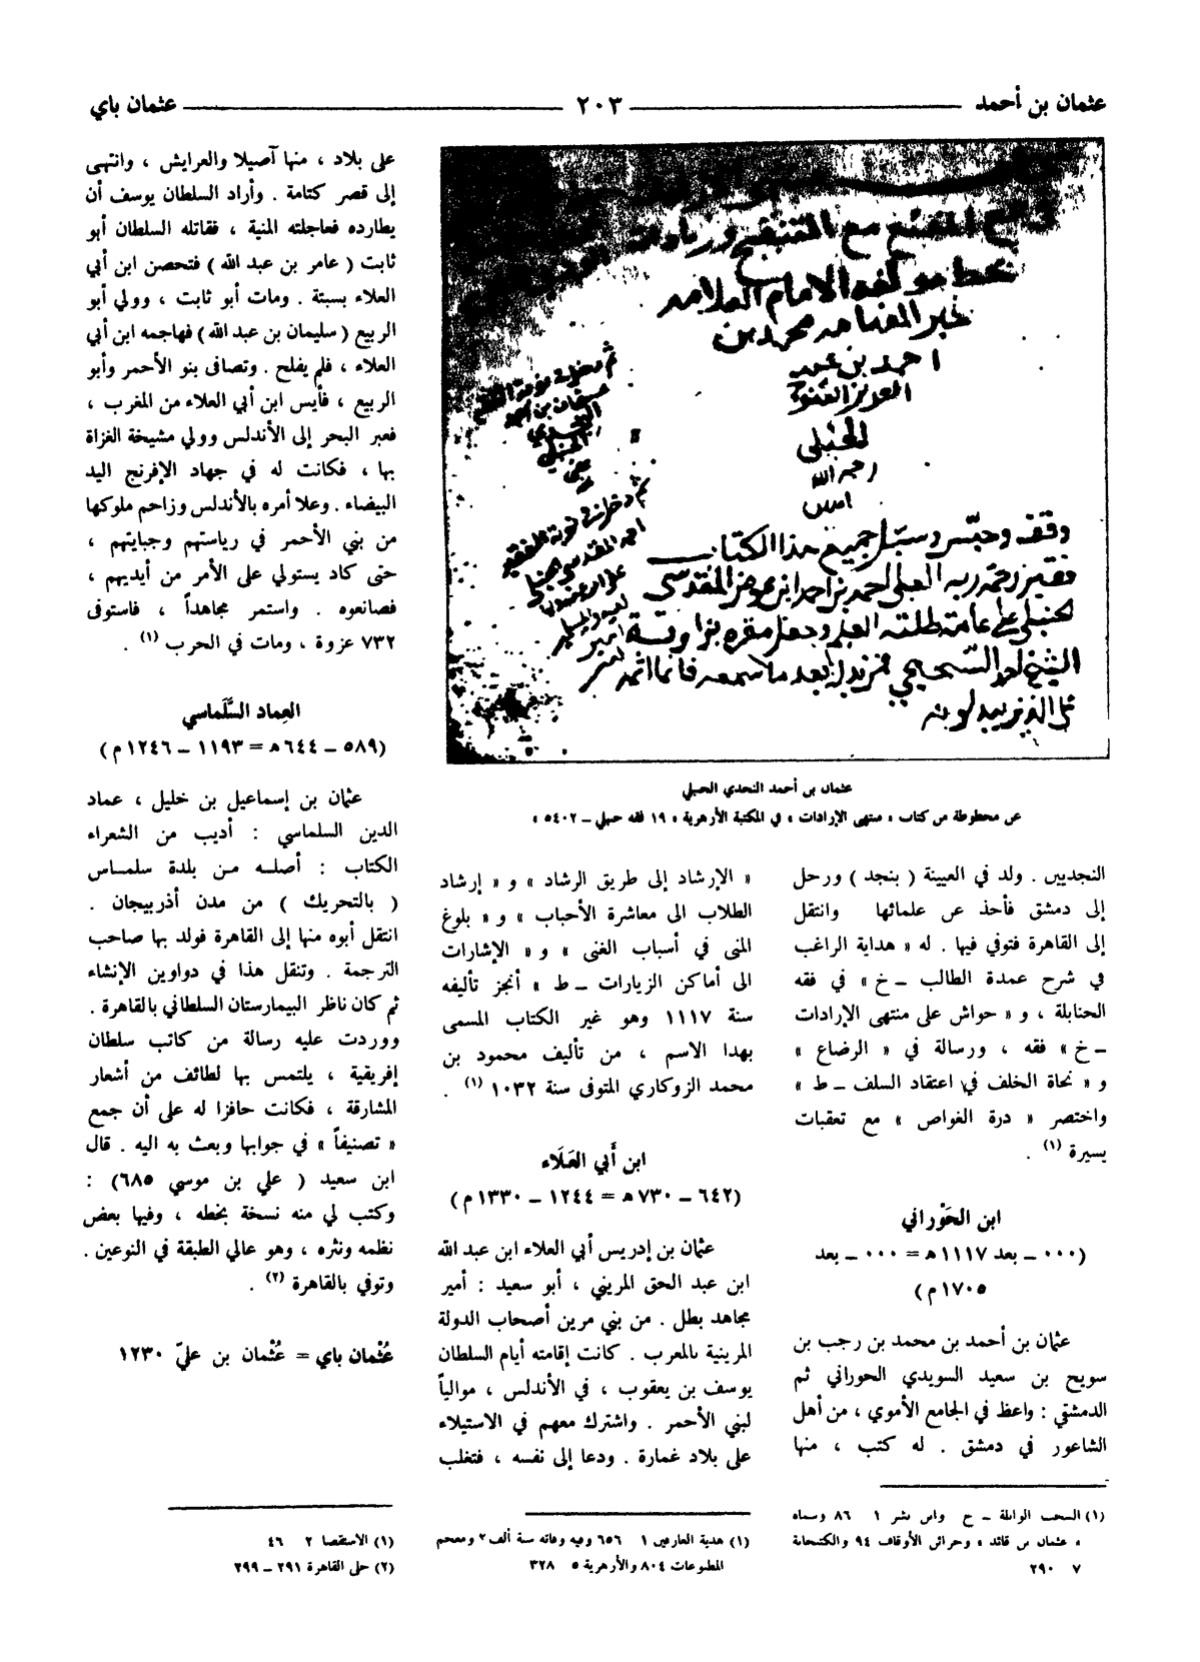 عثمان بن أحمد
٢٠٣
عثمان باي
بخط مؤلفه الإمام العلامه
محمد بن
احمد بن عبد
العزيز الفتوحي
الحنبلي
رحمه الله
امين
وقف وحبس وسبل جميع هذا الكتاب
فقير رحمة ربه العلي احمد بن احمد ابن عوض المقدسي
عثمان بن أحمد النجدي الحنبلي
عن مخطوطة من كتاب « منتهى الإرادات » في المكتبة الأزهرية « ١٩ فقه حنبلي ــ ٥٤٠٢ »
النجديين . ولد في العيينة ( بنجد ) ورحل
إلى دمشق فأخذ عن علمائها وانتقل
إلى القاهرة فتوفي فيها . له « هداية الراغب
في شرح عمدة الطالب ــ خ » في فقه
الحنابلة ، و « حواش على منتهى الإرادات
ــ خ » فقه ، ورسالة في « الرضاع »
و « نجاة الخلف في اعتقاد السلف ــ ط »
واختصر « درة الغواص » مع تعقبات
يسيرة (١) .
ابن الحَوْراني
(٠٠٠ ــ بعد ١١١٧ هـ = ٠٠٠ ــ بعد
١٧٠٥ م)
عثمان بن أحمد بن محمد بن رجب بن
سويح بن سعيد السويدي الحوراني ثم
الدمشقي : واعظ في الجامع الأموي ، من أهل
الشاعور في دمشق . له كتب ، منها
(١) السحب الوابلة ــ خ وابن بشر ١ ٨٦ وسماه
« عثمان بن قائد » وخزائن الأوقاف ٩٤ والكتبخانة
٧ ٢٩٠
« الإرشاد إلى طريق الرشاد » و « إرشاد
الطلاب الى معاشرة الأحباب » و « بلوغ
المنى في أسباب الغنى » و « الإشارات
الى أماكن الزيارات ــ ط » أنجز تأليفه
سنة ١١١٧ وهو غير الكتاب المسمى
بهذا الاسم ، من تأليف محمود بن
محمد الزوكاري المتوفى سنة ١٠٣٢ (١) .
ابن أَبي العَلَاء
(٦٤٢ ــ ٧٣٠ هـ = ١٢٤٤ ــ ١٣٣٠ م)
عثمان بن إدريس أبي العلاء ابن عبد الله
ابن عبد الحق المريني ، أبو سعيد : أمير
مجاهد بطل . من بني مرين أصحاب الدولة
المرينية بالمغرب . كانت إقامته أيام السلطان
يوسف بن يعقوب ، في الأندلس ، موالياً
لبني الأحمر . واشترك معهم في الاستيلاء
على بلاد غمارة . ودعا إلى نفسه ، فتغلب
(١) هدية العارفين ١ ٦٥٦ وفيه وفاته سنة ألف ؟ ومعجم
المطبوعات ٨٠٤ والأزهرية ٥ ٣٢٨
على بلاد ، منها آصيلا والعرايش ، وانتهى
إلى قصر كتامة . وأراد السلطان يوسف أن
يطارده فعاجلته المنية ، فقاتله السلطان أبو
ثابت ( عامر بن عبد الله ) فتحصن ابن أبي
العلاء بسبتة . ومات أبو ثابت ، وولي أبو
الربيع ( سليمان بن عبد الله ) فهاجمه ابن أبي
العلاء ، فلم يفلح . وتصافى بنو الأحمر وأبو
الربيع ، فأيس ابن أبي العلاء من المغرب ،
فعبر البحر إلى الأندلس وولي مشيخة الغزاة
بها ، فكانت له في جهاد الإفرنج اليد
البيضاء . وعلا أمره بالأندلس وزاحم ملوكها
من بني الأحمر في رياستهم وجبايتهم ،
حتى كاد يستولي على الأمر من أيديهم ،
فصانعوه . واستمر مجاهداً ، فاستوفى
٧٣٢ غزوة ، ومات في الحرب (١) .
العِماد السَّلَماسي
(٥٨٩ ــ ٦٤٤ هـ = ١١٩٣ ــ ١٢٤٦ م)
عثمان بن إسماعيل بن خليل ، عماد
الدين السلماسي : أديب من الشعراء
الكتاب : أصله من بلدة سلماس
( بالتحريك ) من مدن أذربيجان .
انتقل أبوه منها إلى القاهرة فولد بها صاحب
الترجمة . وتنقل هذا في دواوين الإنشاء
ثم كان ناظر البيمارستان السلطاني بالقاهرة .
ووردت عليه رسالة من كاتب سلطان
إفريقية ، يلتمس بها لطائف من أشعار
المشارقة ، فكانت حافزا له على أن جمع
« تصنيفاً » في جوابها وبعث به اليه . قال
ابن سعيد ( علي بن موسي ٦٨٥) :
وكتب لي منه نسخة بخطه ، وفيها بعض
نظمه ونثره ، وهو عالي الطبقة في النوعين .
وتوفي بالقاهرة (٢) .
عُثْمان باي = عُثْمان بن عليّ ١٢٣٠
(١) الاستقصا ٢ ٤٦
(٢) حلى القاهرة ٢٩١ ــ ٢٩٩